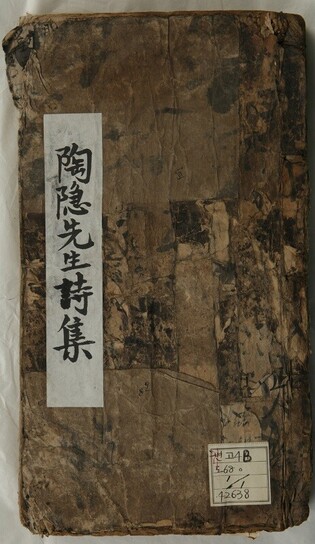 陶隐先生詩集
고4B
5-68
1/1
42638